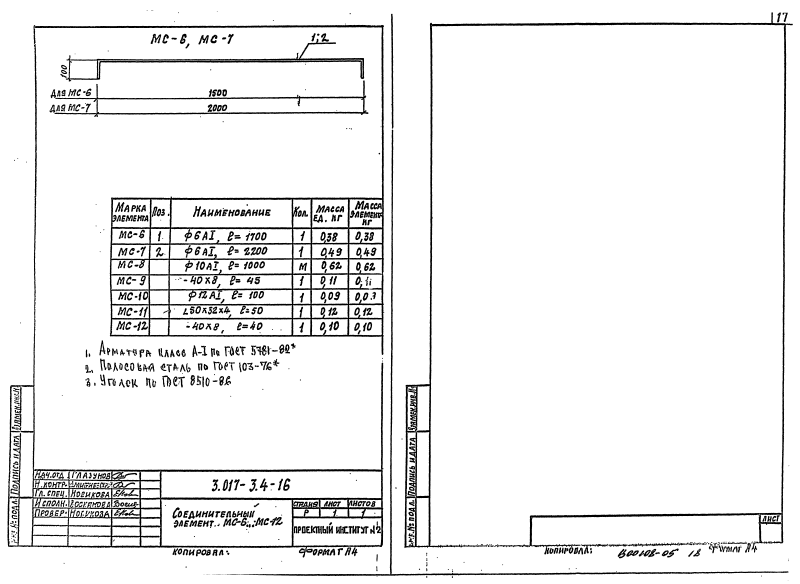 17
МС-6, МС-7
1;2
100
Для МС-6 1500
Для МС-7 2000
Марка элемента Поз. Наименование Кол. Масса ед. кг Масса элемента кг
МС-6 1 ϕ6АI, ℓ=1700 1 0,38 0,38
МС-7 2 ϕ6АI, ℓ=2200 1 0,49 0,49
МС-8 ϕ10АI, ℓ=1000 М 0,62 0,62
МС-9 -40×8, ℓ=45 1 0,11 0,11
МС-10 ϕ12АI, ℓ=100 1 0,09 0,0
МС-11 L50×32×4, ℓ=50 1 0,12 0,12
МС-12 -40×8, ℓ=40 1 0,10 0,10
1. Арматура класс А-I по ГОСТ 5781-82*
2. Полосовая сталь по ГОСТ 103-76*
3. Уголок по ГОСТ 8510-86
Подпись и дата
Инв.№ подл.
Нач.отд. Глазунов
Н.контр.
Гл. спец. Новикова
Исполн.
Провер. Новикова
3.017-3.4-16
Соединительный
элемент МС-6...МС-12
Стадия Лист Листов
Р 1 1
Проектный институт №2
Копировал:
Формат А4
Подпись и дата
Инв.№ подл.
Лист
Копировал: В00108-05 18 Формат А4